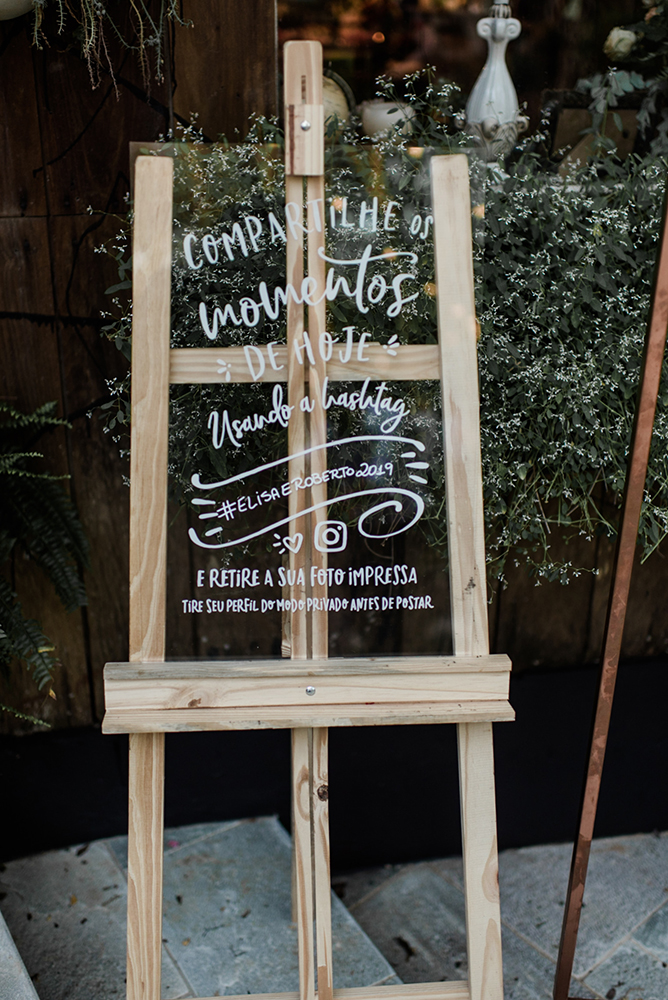 COMPARTILHE OS
momentos
DE HOJE
Usando a hashtag
#ELISAEROBERTO2019
E RETIRE A SUA FOTO IMPRESSA
TIRE SEU PERFIL DO MODO PRIVADO ANTES DE POSTAR